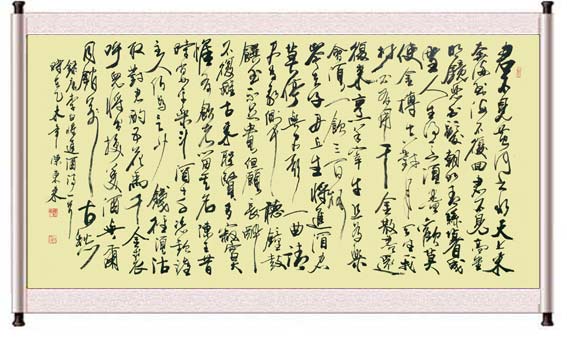 君不見黃河之水天上來
奔流到海不復回君不見高堂
明鏡悲白髮朝如青絲暮成
雪人生得意須盡歡莫
使金樽空對月天生我
材必有用千金散盡還
復來烹羊宰牛且為樂
會須一飲三百杯
岑夫子丹丘生將進酒君
莫停與君歌一曲請
君為我傾耳聽鐘鼓
饌玉不足貴但願長醉
不復醒古來聖賢皆寂寞
惟有飲者留其名陳王昔
時宴平樂斗酒十千恣歡謔
主人何為言少錢徑須沽
取對君酌五花馬千金裘
呼兒將出換美酒與爾
同銷萬古愁
錄唐李白將進酒詩一首
時在乙未年